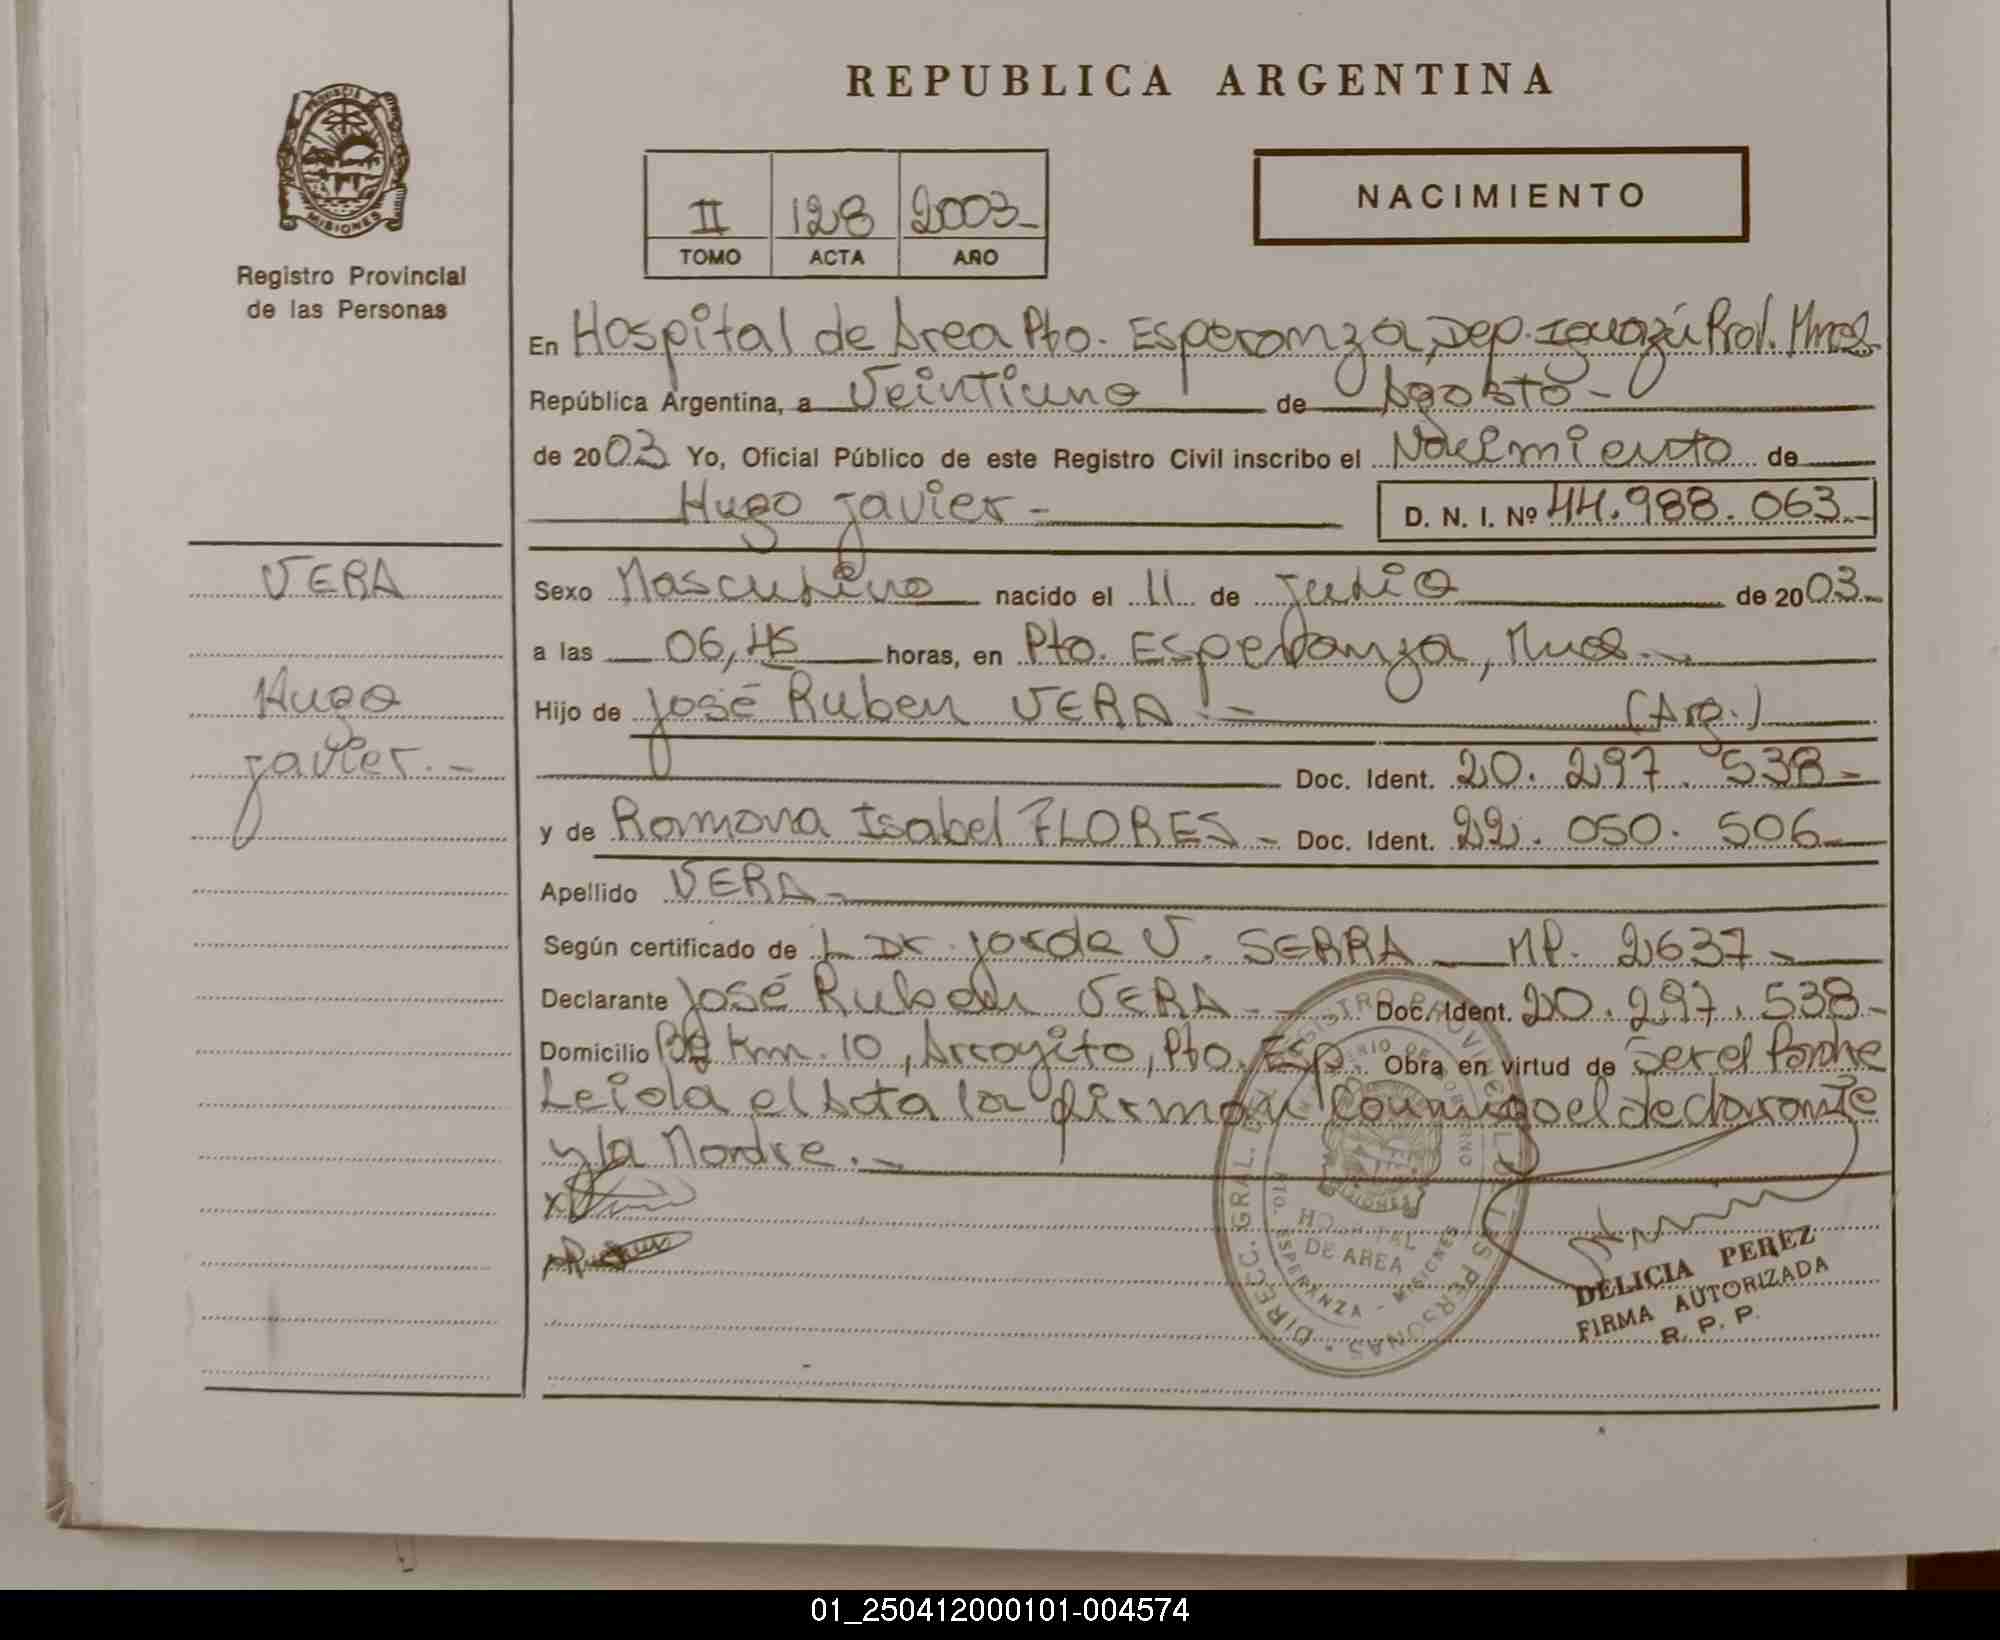 REPUBLICA ARGENTINA
PROVINCIA DE
MISIONES
Registro Provincial
de las Personas
II 128 2003
TOMO ACTA AÑO
NACIMIENTO
En Hospital de Area Pto. Esperanza, Dep. Iguazú Prov. Mnes
República Argentina, a Veintiuno de Agosto -
de 2003 Yo, Oficial Público de este Registro Civil inscribo el Nacimiento de
Hugo Javier - D. N. I. Nº 44.988.063 -
VERA
Hugo
Javier. -
Sexo Masculino nacido el 11 de Julio de 2003 -
a las 06,45 horas, en Pto. Esperanza, Mnes. -
Hijo de José Ruben VERA - (Arg.)
Doc. Ident. 20. 297. 538 -
y de Ramona Isabel FLORES - Doc. Ident. 22. 050. 506 -
Apellido VERA -
Según certificado de Dr. Jorge V. SERRA MP. 2637 -
Declarante José Ruben VERA - Doc. Ident. 20. 297. 538 -
Domicilio Km. 10, Arroyito, Pto. Esp. Obra en virtud de Ser el Padre
Leida el Acta la firman conmigo el declarante
y la Madre. -
DIREC. GRAL. DEL REGISTRO PROVINCIAL DE LAS PERSONAS
MINISTERIO DE GOBIERNO
HOSPITAL
DE AREA
PTO. ESPERANZA - MISIONES
DELICIA PEREZ
FIRMA AUTORIZADA
R. P. P.
01_250412000101-004574